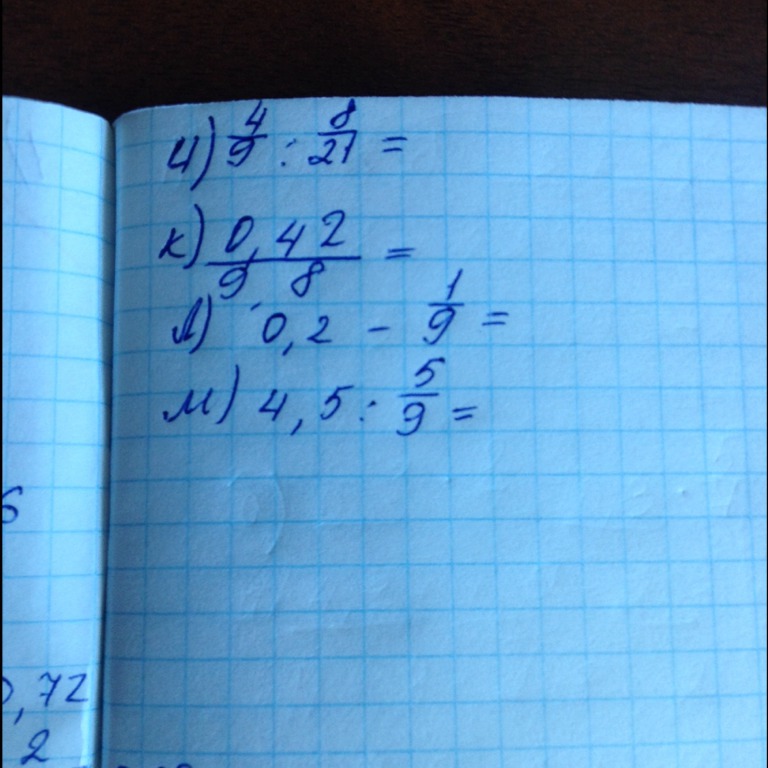 и) 4/9 : 8/21 =
к) 0,42 / 9 8 =
л) 0,2 - 1/9 =
м) 4,5 : 5/9 =
6
0,72
2